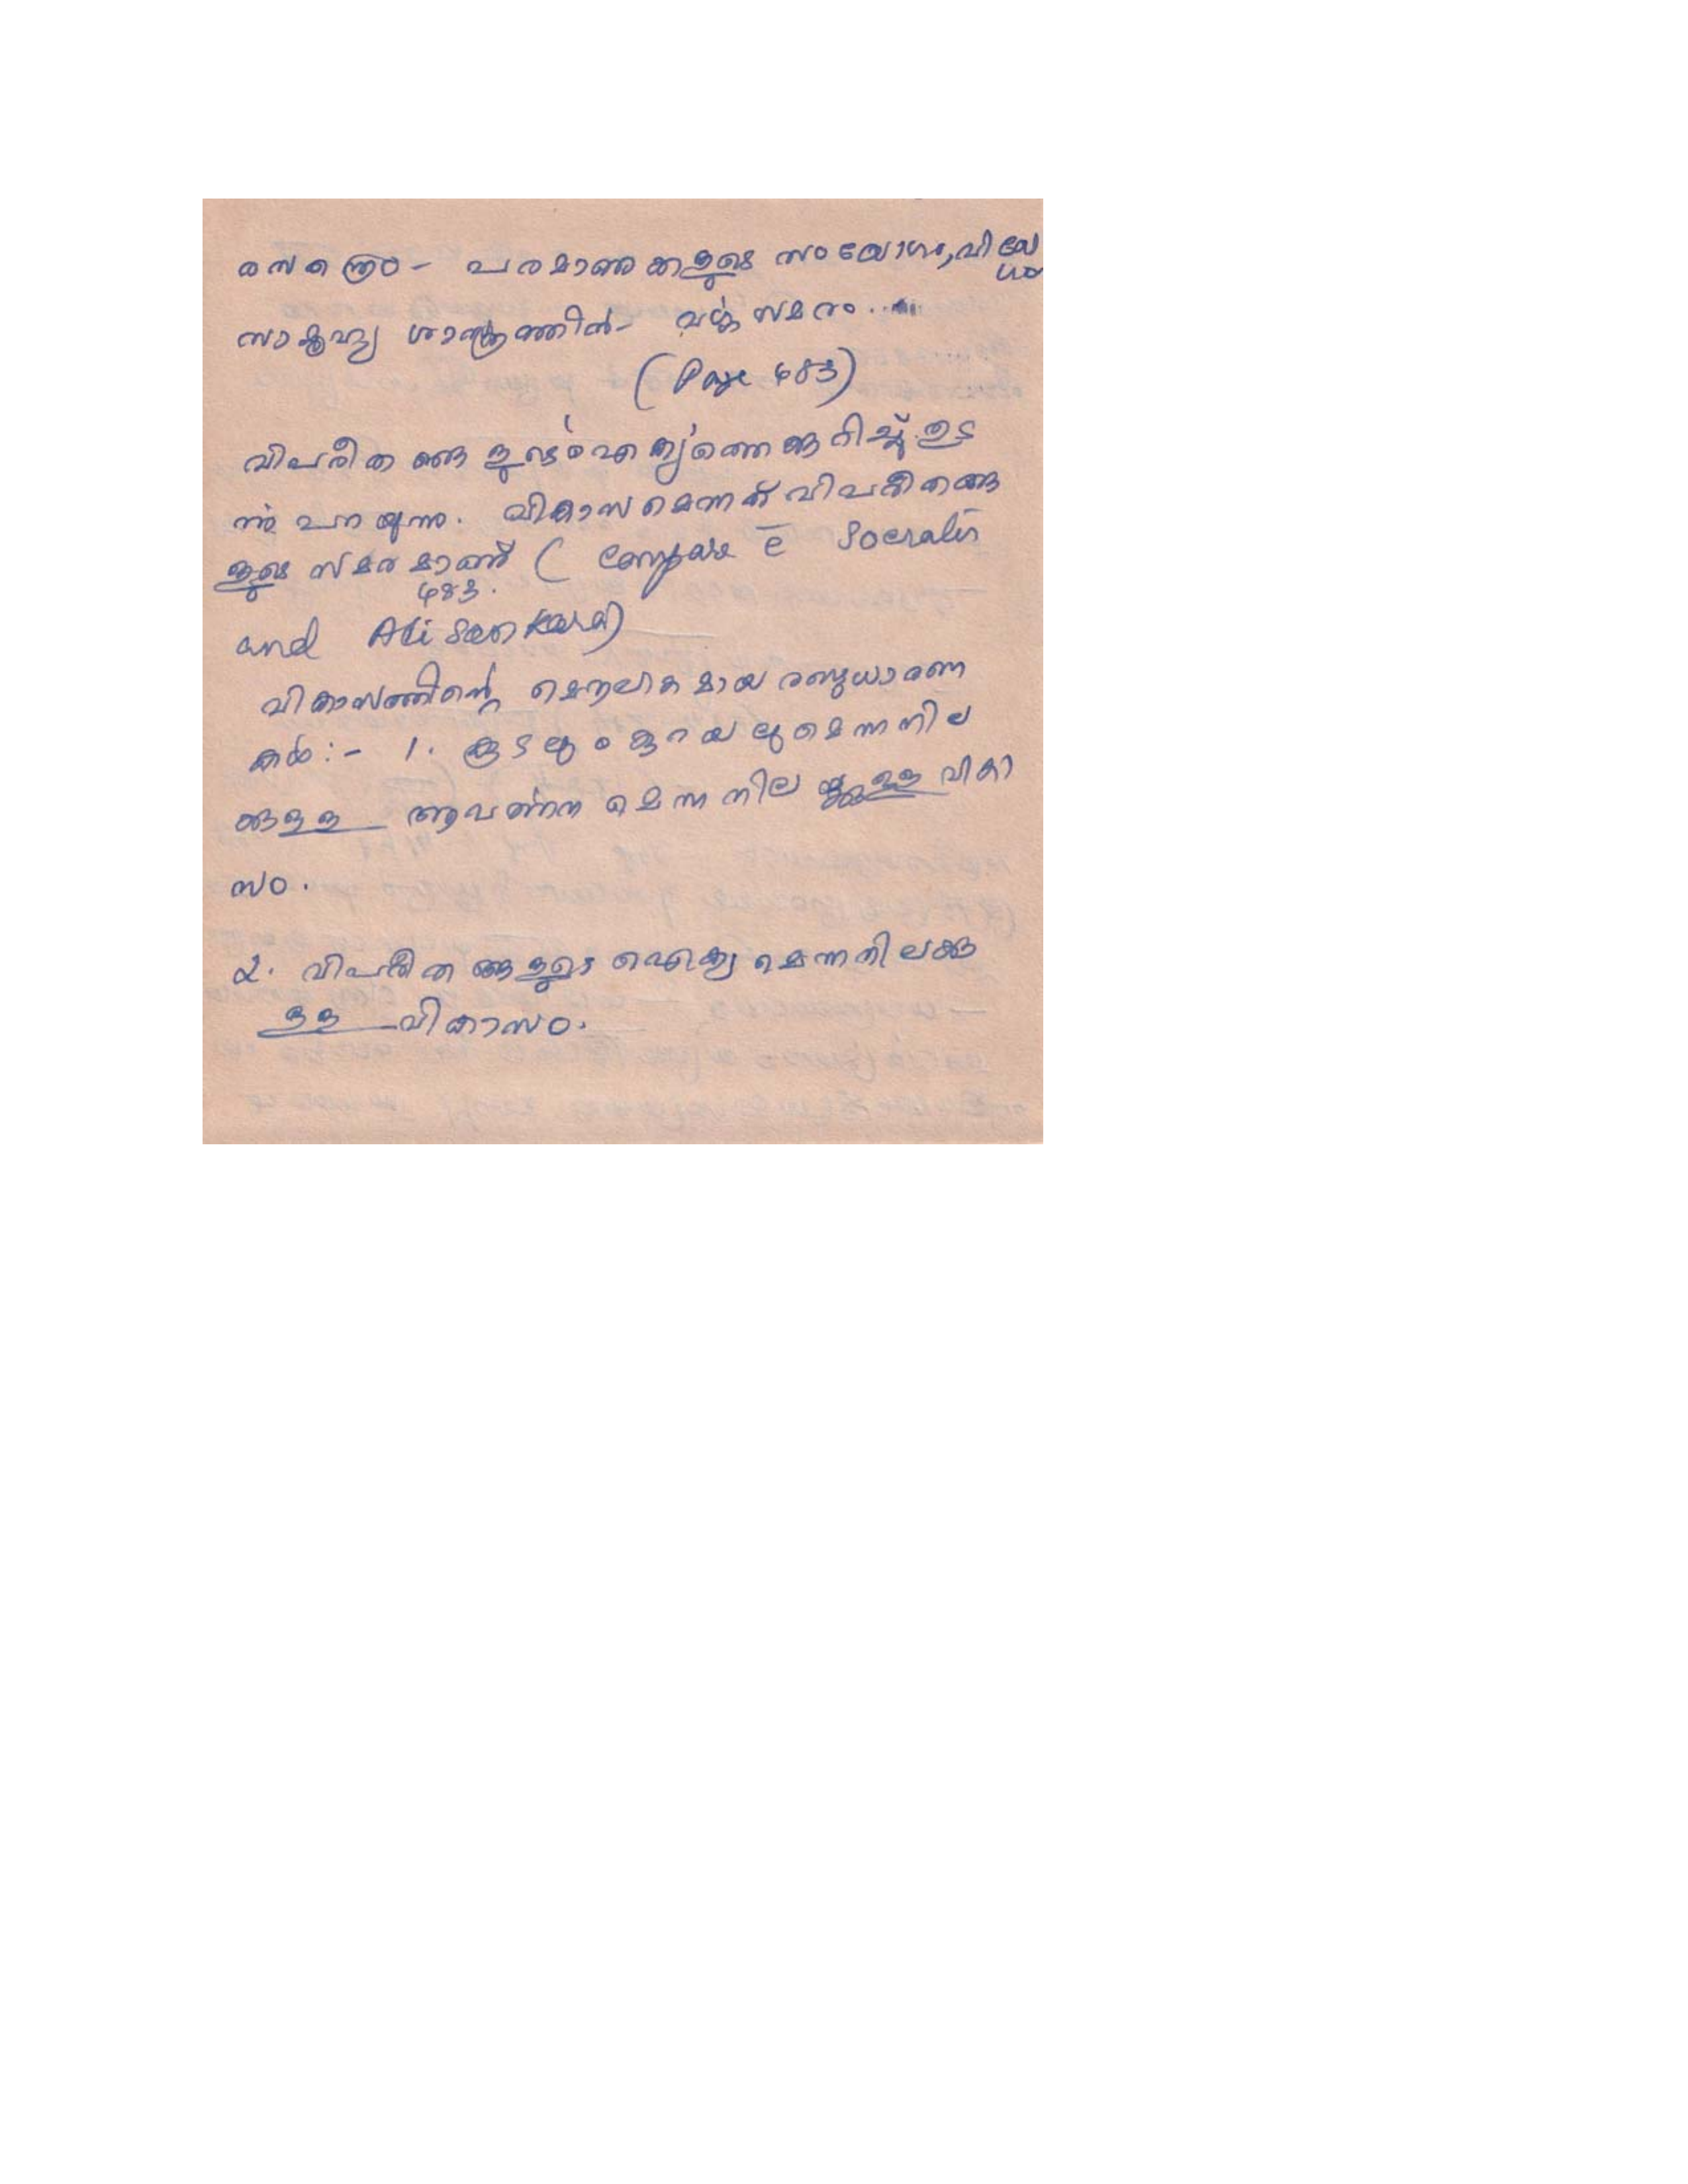 രസതന്ത്രം - പരമാണുക്കളുടെ സംയോഗം, വിയോഗം
സാമൂഹ്യ ശാസ്ത്രത്തിൽ - വർഗ്ഗ സമരം...
(Page 483)
വിപരീതങ്ങളുടെ ഐക്യത്തെക്കുറിച്ച് തുട
ർന്നു പറയുന്നു. വികാസമെന്നത് വിപരീതങ്ങ
ളുടെ സമരമാണ് ( Compare c̄ Socratis
483.
and Ati Sankara)
വികാസത്തിന്റെ മൌലികമായ രണ്ടുധാരണ
കൾ :- 1. കൂടലും കുറയലുമെന്ന നില
ക്കുള്ള ആവർത്തനമെന്ന നിലക്കുള്ള വികാ
സം.
2. വിപരീതങ്ങളുടെ ഐക്യമെന്ന നിലക്കു
ള്ള വികാസം.